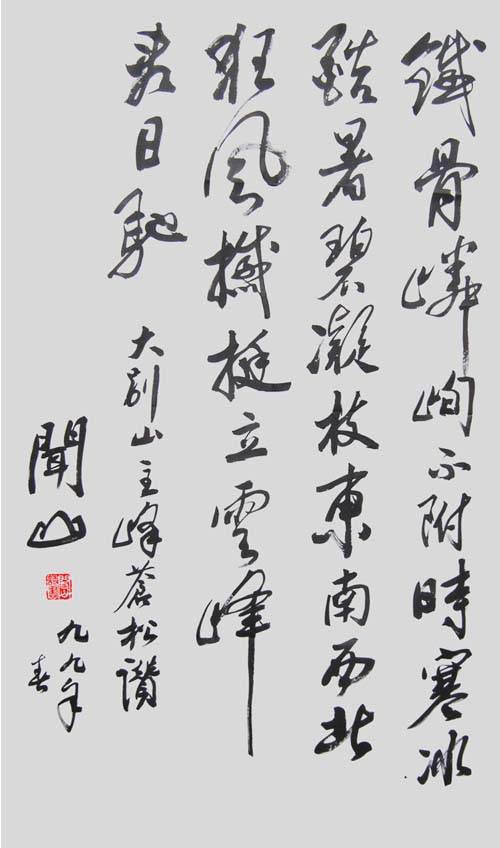 鐵骨嶙峋不附時寒冰
酷暑碧凝枝東南西北
狂風撼挺立雲峰
看日馳
大別山主峰蒼松讚
聞山
九九年
春